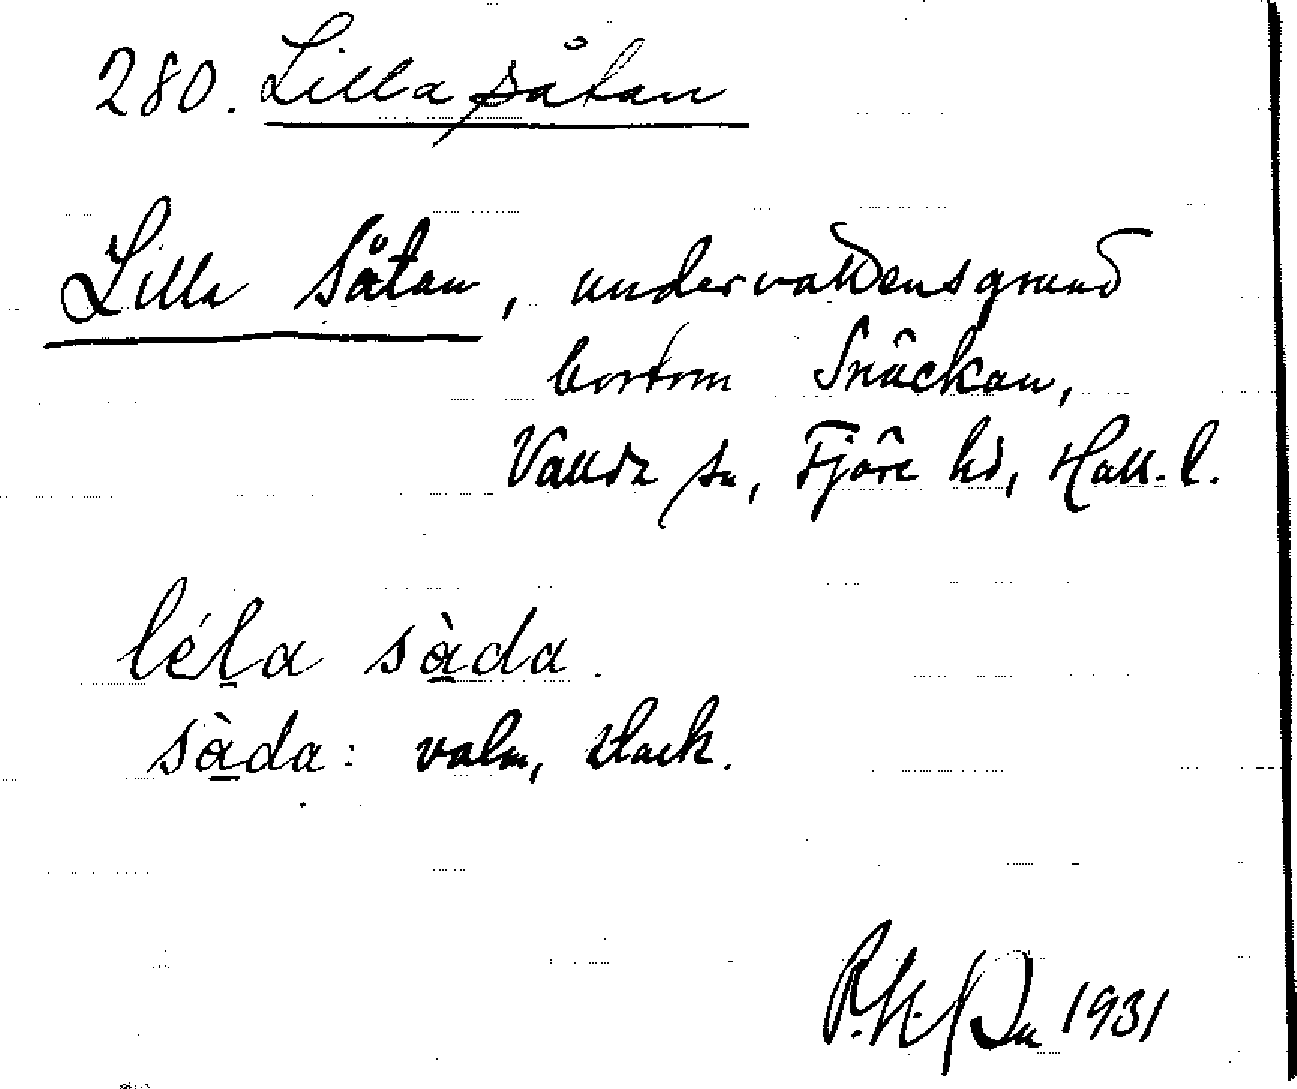 280. Lilla såtan
Lilla Såtan, undervattensgrund
bortom Snäckan,
Vallda sn, Fjäre hd, Hall. l.
léḻa sà̱da.
sà̱da: valm, stack.
1931